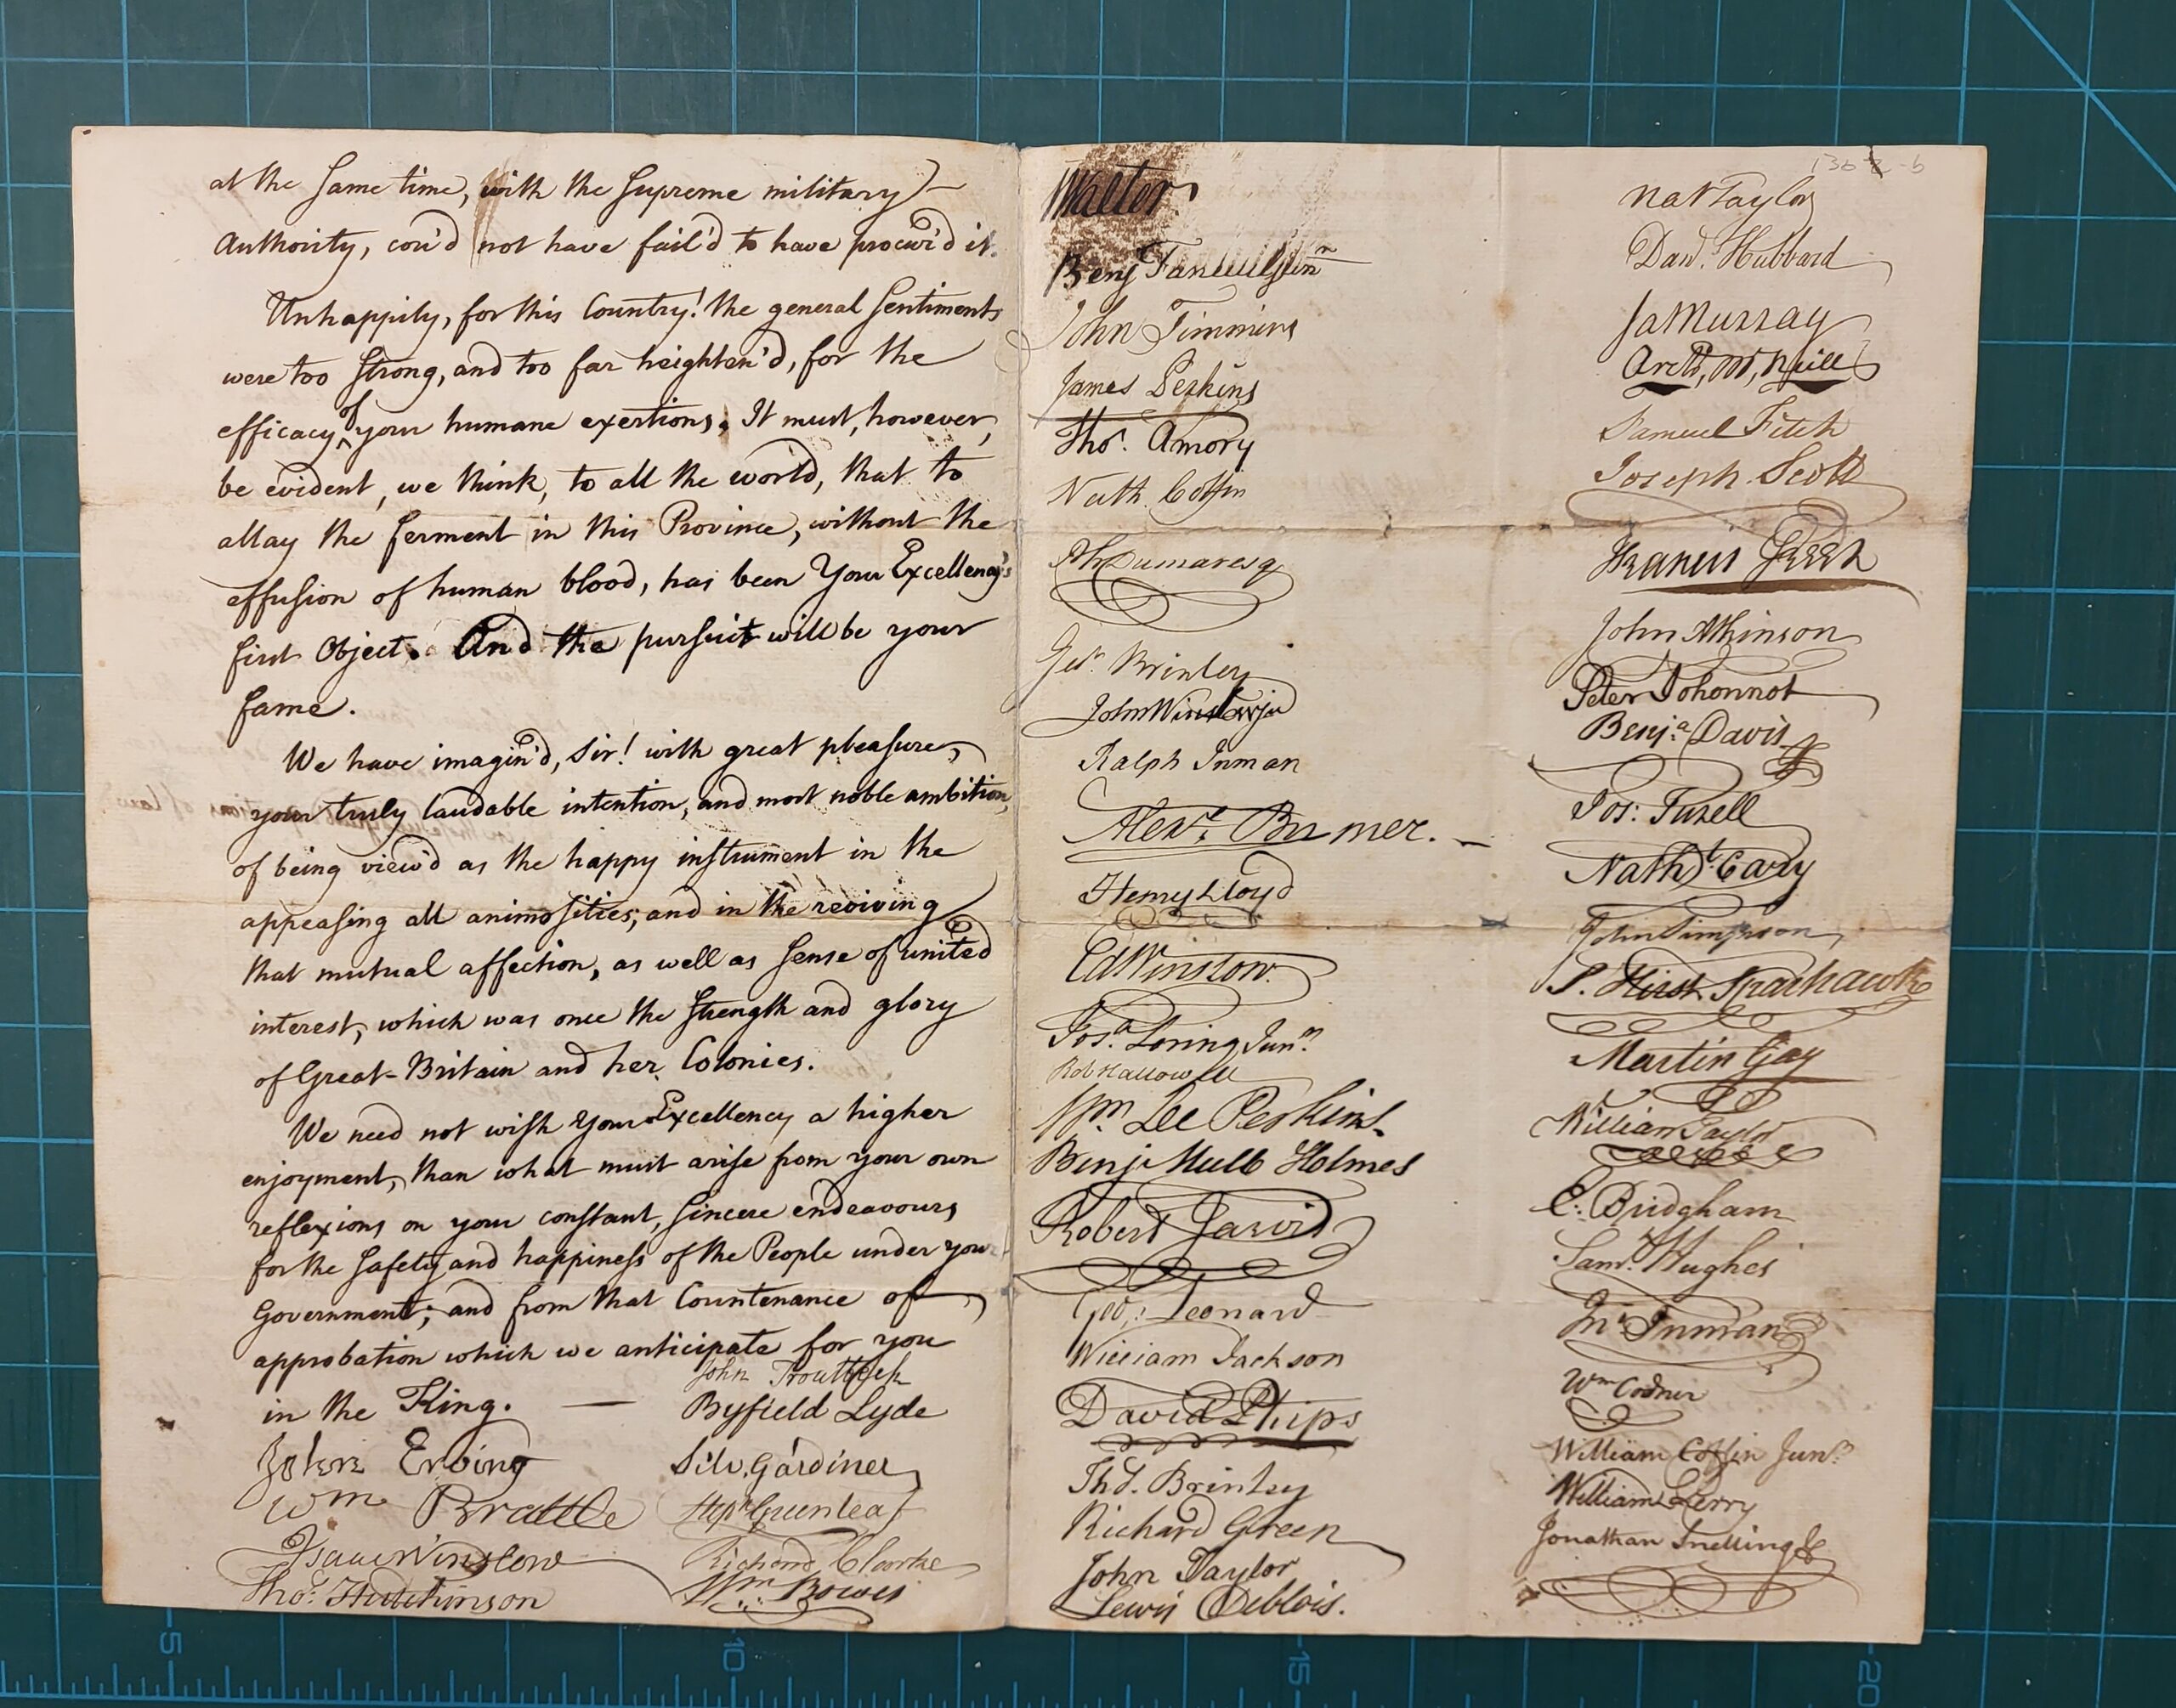 at the same time, with the supreme military
Authority, cou'd not have fail'd to have procur'd it.
Unhappily, for this Country! the general sentiments
were too strong, and too far heighten'd, for the
efficacy of your humane exertions. It must, however,
be evident, we think, to all the world, that to
allay the ferment in this Province, without the
effusion of human blood, has been Your Excellency's
first Object. And the pursuit will be your
fame.
We have imagin'd, Sir! with great pleasure,
your truly laudable intention, and most noble ambition,
of being view'd as the happy instrument in the
appeasing all animosities; and in the reviving
that mutual affection, as well as sense of united
interest, which was once the strength and glory
of Great-Britain and her Colonies.
We need not wish Your Excellency a higher
enjoyment, than what must arise from your own
reflexions on your constant, sincere endeavours
for the safety and happiness of the People under your
Government; and from that Countenance of
approbation which we anticipate for you
in the King. —
John Erving
Wm Brattle
Isaac Winslow
Thos: Hutchinson
John Troutbeck
Byfield Lyde
Silv. Gardiner
Stepn Greenleaf
Richard Clarke
Wm: Bowes
Walter
Benj Faneuil Junr
John Timmins
James Perkins
Thos. Amory
Nath. Coffin
Ph Dumaresq
Geo Brinley
John Winslow jr
Ralph Inman
Alexr. Brymer.
Henry Lloyd
Ed Winslow.
Josa. Loring Junr.
Rob Hallowell
Wm. Lee Perkins.
Benj Mulb Holmes
Robert Jarvis
Geo: Leonard
William Jackson
David Phips
Thos. Brinley
Richard Green
John Taylor
Lewis Deblois.
Nat Taylor
Dand. Hubbard
Ja Murray
Archd, Mc, Neill
Samuel Fitch
Joseph Scott
Francis Green
John Atkinson
Peter Johonnot
Benja. Davis
Jos: Turell
Nathl. Cary
John Simpson
S. Hirst Sparhawk
Martin Gay
William Taylor
E: Bridgham
Saml. Hughes
Jno Inman
Wm Codner
William Coffin Junr.
William Perry
Jonathan Snelling
5
10
15
20